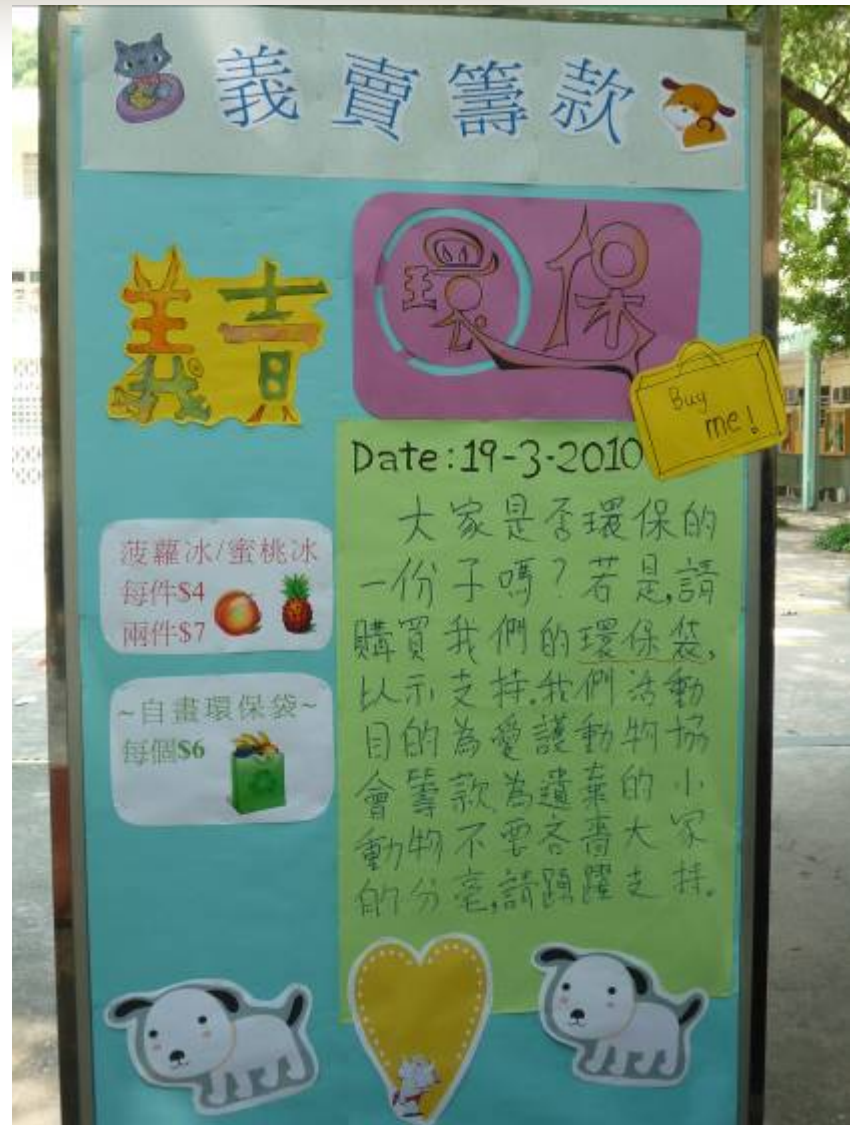 義賣籌款
義賣
環保
Buy
me!
Date:19-3-2010
大家是否環保的
一份子嗎?若是,請
購買我們的環保袋,
以示支持.我們活動
目的為愛護動物協
會籌款,為遺棄的小
動物不要吝嗇大家
的分毫,請踴躍支持.
菠蘿冰/蜜桃冰
每件$4
兩件$7
~自畫環保袋~
每個$6